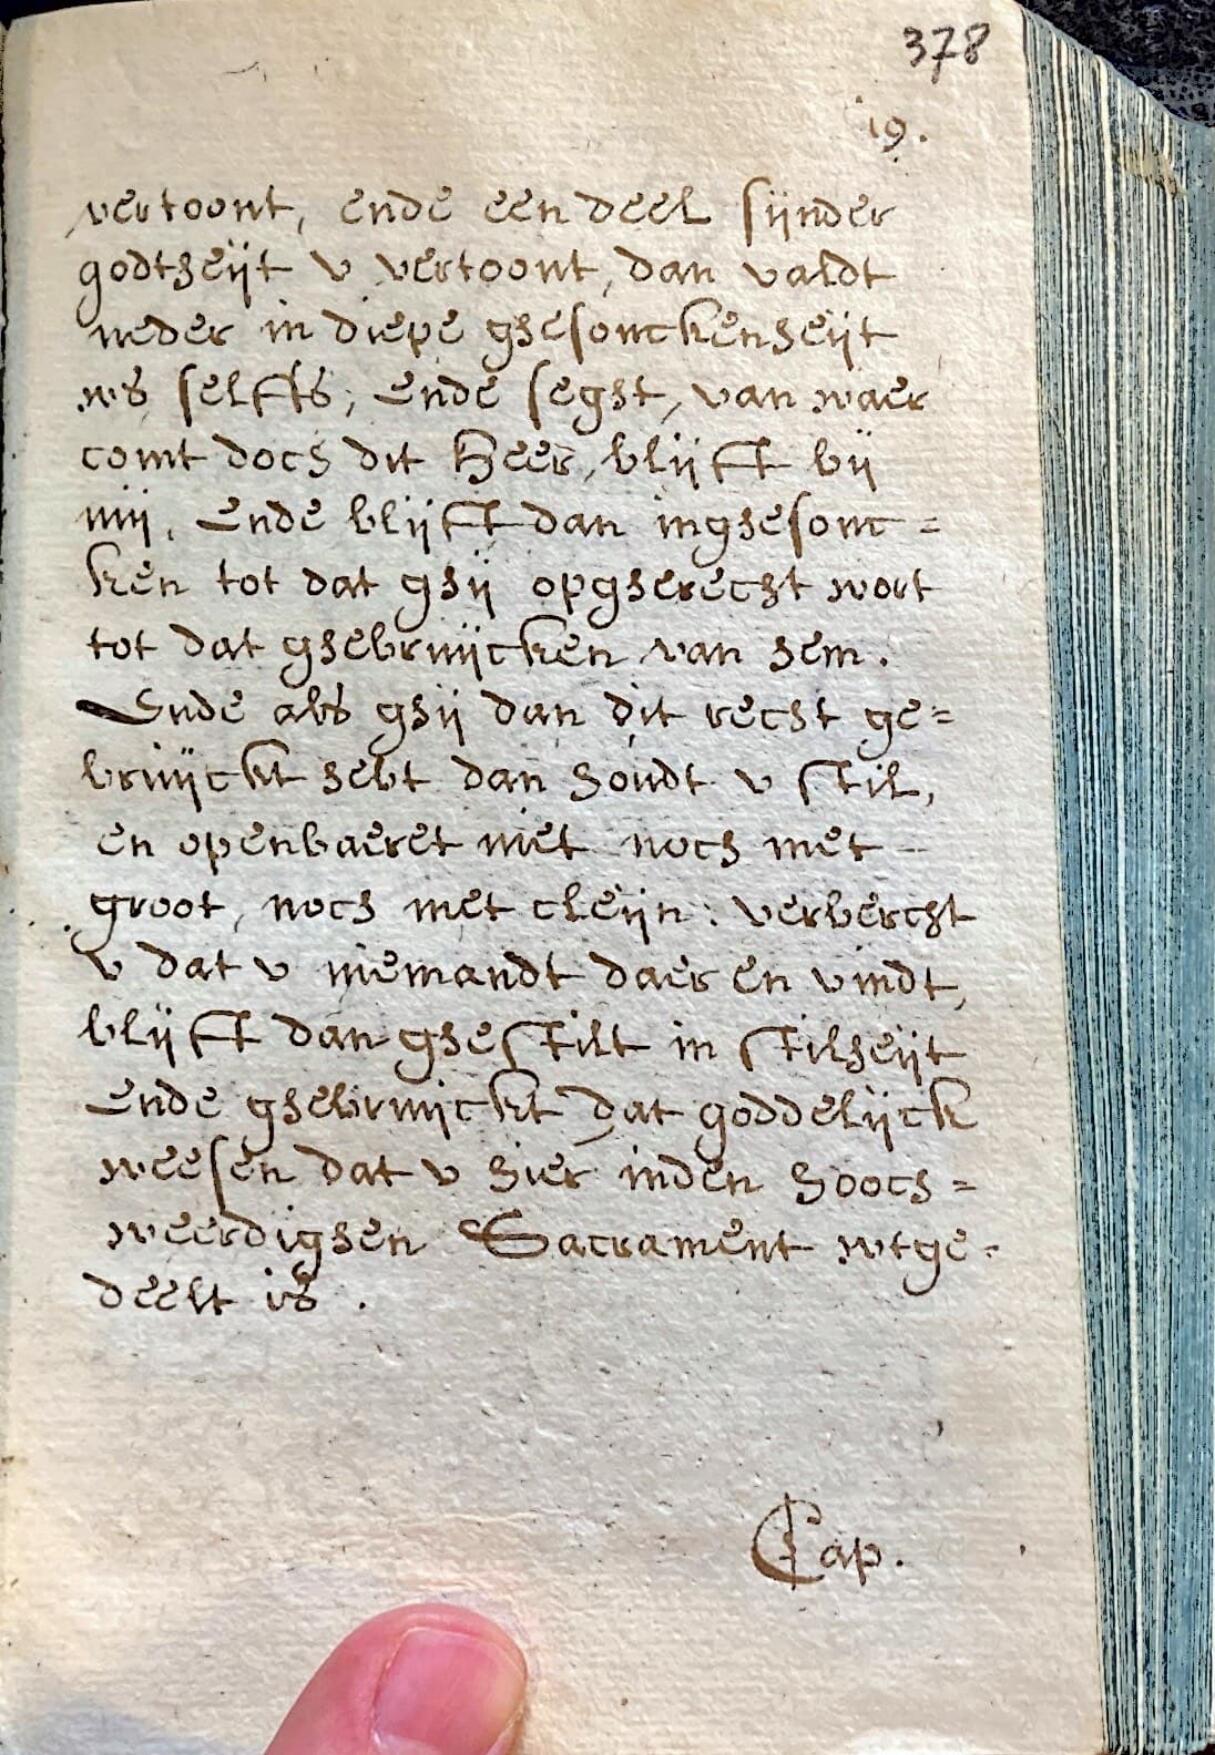 378
19.
vertoont, ende een deel sijnder
godtheijt v vertoont, dan valdt
neder in diepe ghesonckenheijt
ws selfts; Ende seght, van waer
comt doch dit Heer, blijft bij
mij. Ende blijft dan inghesonc=
ken tot dat ghij opgherecht wort
tot dat ghebruijcken van hem.
Ende als ghij dan dit recht ge=
bruijckt hebt dan houdt v stil,
en openbaeret niet noch met
groot, noch met cleijn: verbercht
v dat v niemandt daer en vindt,
blijft dan ghestilt in stilheijt
Ende ghebruijckt dat goddelijck
weesen dat v hier inden hooch=
weerdighen Sacrament wtge=
deelt is.
Cap.